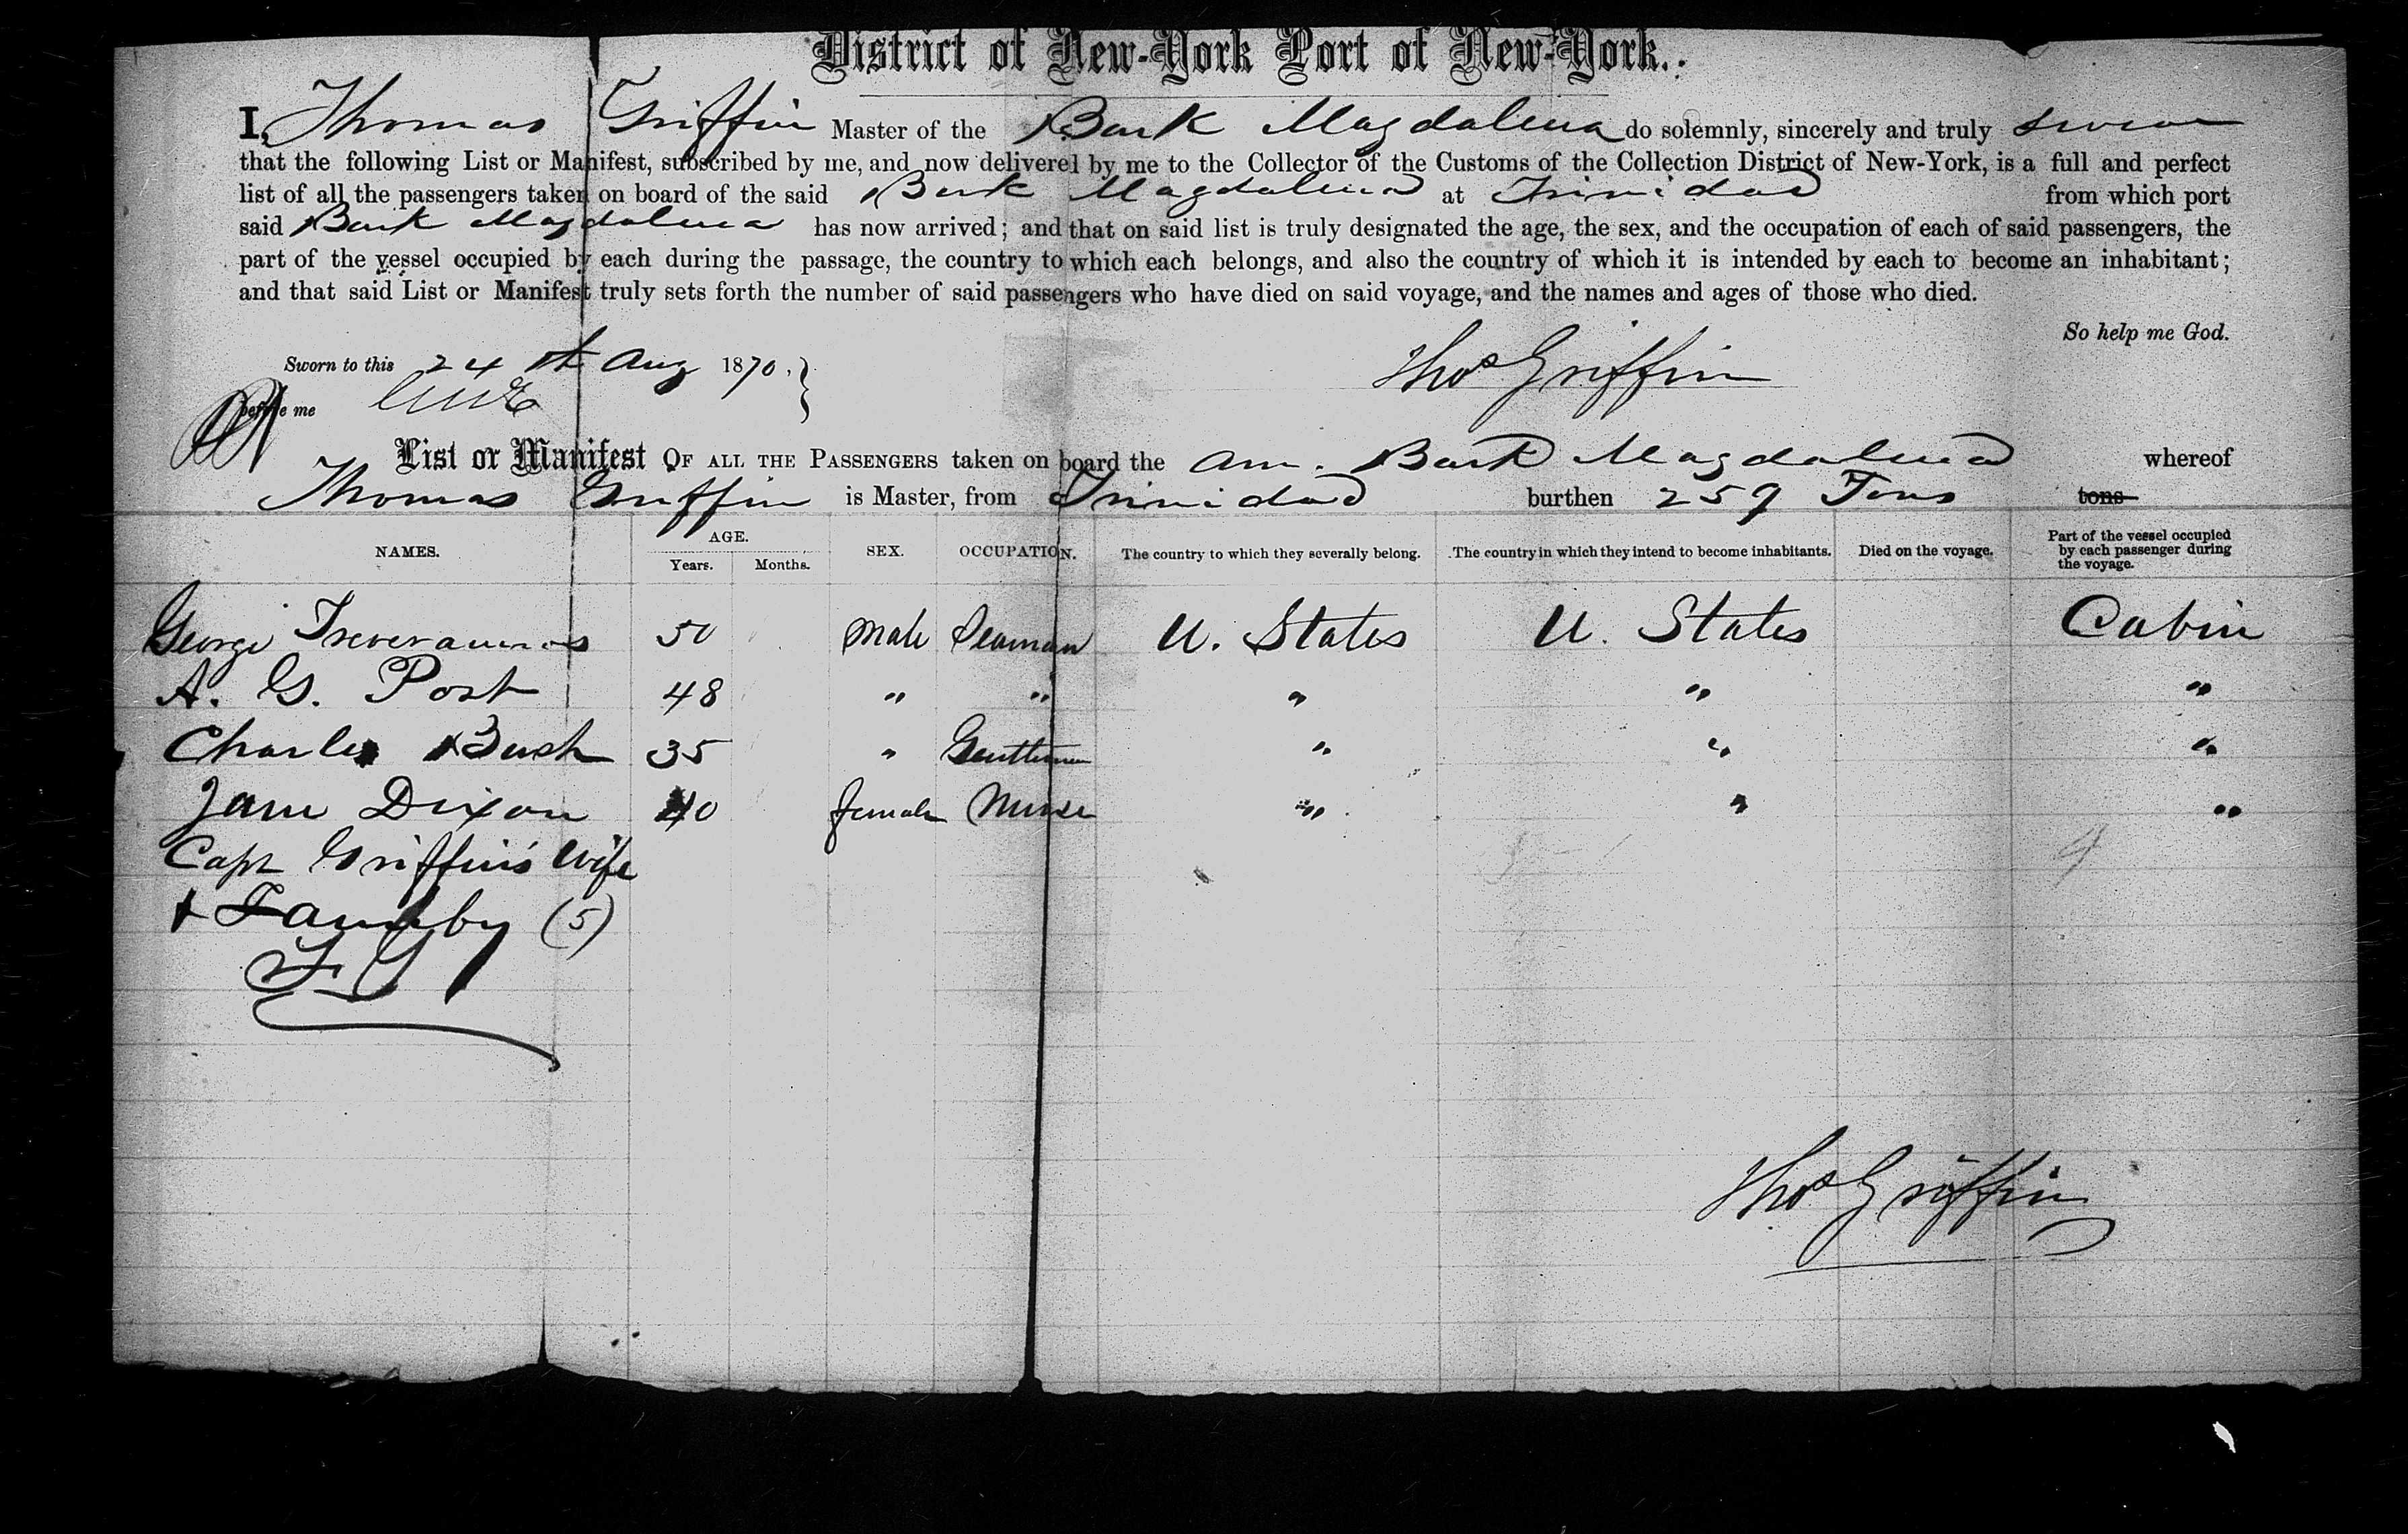 District of New-York Port of New-York.
I, Thomas Griffin Master of the Bark Magdalena do solemnly, sincerely and truly swear
that the following List or Manifest, subscribed by me, and now delivered by me to the Collector of the Customs of the Collection District of New-York, is a full and perfect
list of all the passengers taken on board of the said Bark Magdalena at Trinidad from which port
said Bark Magdalena has now arrived; and that on said list is truly designated the age, the sex, and the occupation of each of said passengers, the
part of the vessel occupied by each during the passage, the country to which each belongs, and also the country of which it is intended by each to become an inhabitant;
and that said List or Manifest truly sets forth the number of said passengers who have died on said voyage, and the names and ages of those who died.
So help me God.
Sworn to this 24th Aug 1870.
Thos Griffin
before me
List or Manifest OF ALL THE PASSENGERS taken on board the Am. Bark Magdalena whereof
Thomas Griffin is Master, from Trinidad burthen 259 Tons tons
NAMES. AGE. Years. Months. SEX. OCCUPATION. The country to which they severally belong. The country in which they intend to become inhabitants. Died on the voyage. Part of the vessel occupied by each passenger during the voyage.
George 50 Male Seaman U. States U. States Cabin
A. G. Post 48 " " " " "
Charles Bush 35 " Gentleman " " "
Jane Dixon 40 female Nurse " " "
Capt Griffin's Wife
& Family (5)
9
Thos Griffin